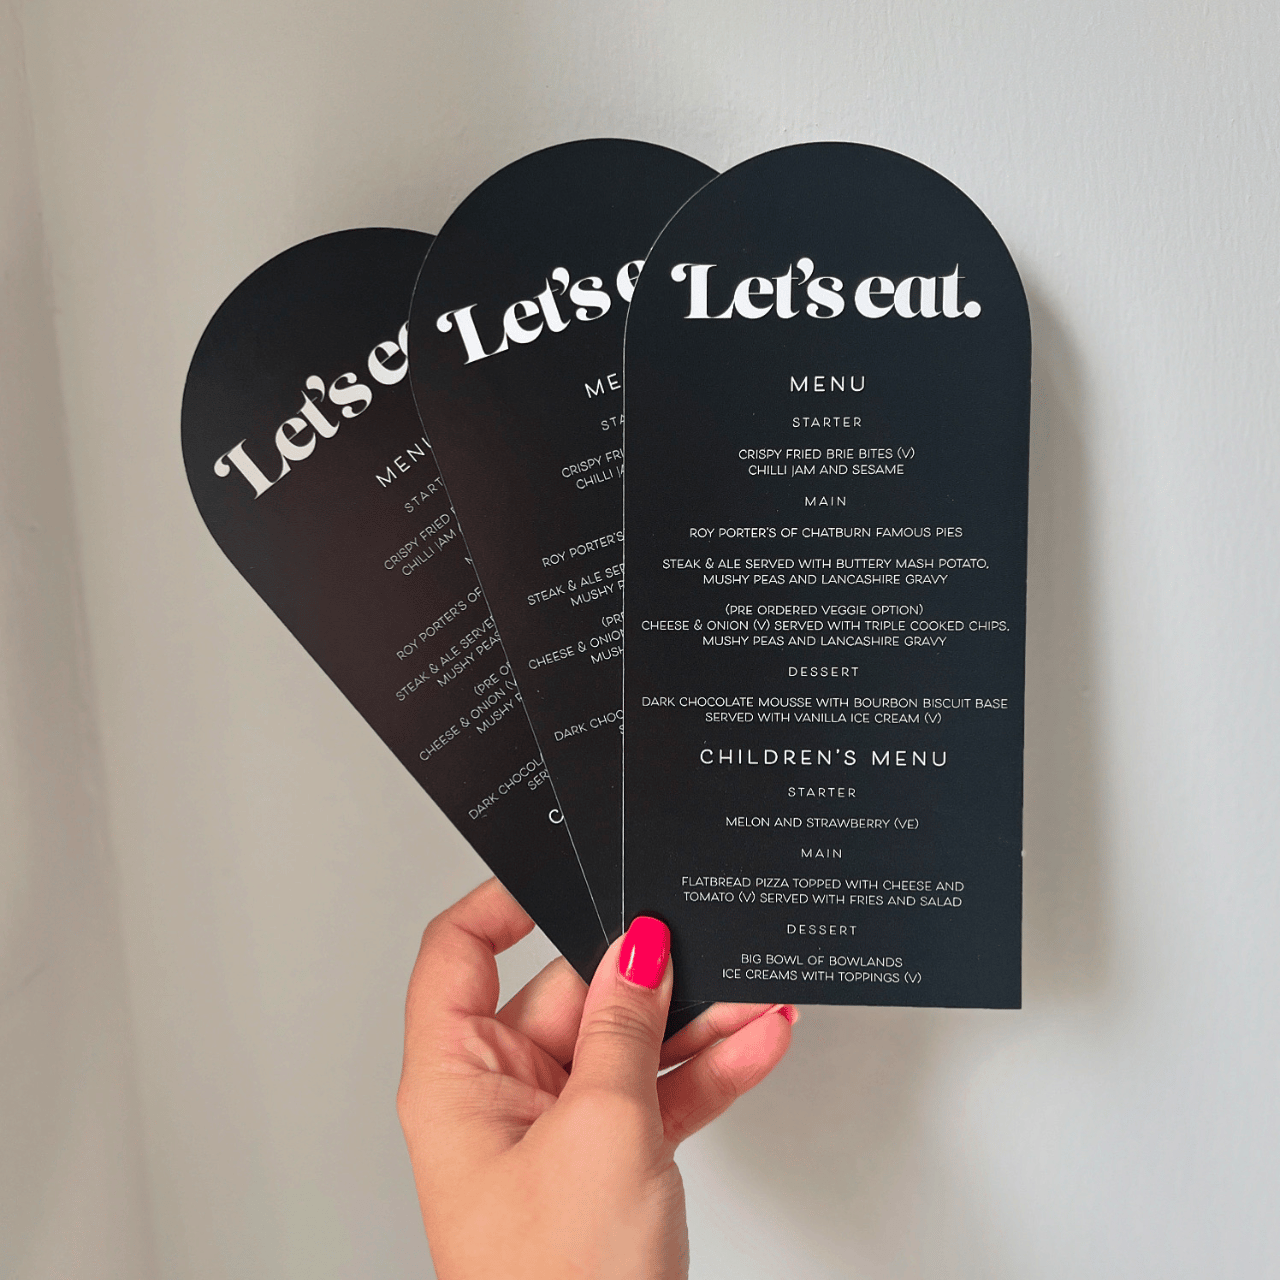 Let's eat.
MENU
STARTER
CRISPY FRIED BRIE BITES (V)
CHILLI JAM AND SESAME
MAIN
ROY PORTER'S OF CHATBURN FAMOUS PIES
STEAK & ALE SERVED WITH BUTTERY MASH POTATO,
MUSHY PEAS AND LANCASHIRE GRAVY
(PRE ORDERED VEGGIE OPTION)
CHEESE & ONION (V) SERVED WITH TRIPLE COOKED CHIPS,
MUSHY PEAS AND LANCASHIRE GRAVY
DESSERT
DARK CHOCOLATE MOUSSE WITH BOURBON BISCUIT BASE
SERVED WITH VANILLA ICE CREAM (V)
CHILDREN'S MENU
STARTER
MELON AND STRAWBERRY (VE)
MAIN
FLATBREAD PIZZA TOPPED WITH CHEESE AND
TOMATO (V) SERVED WITH FRIES AND SALAD
DESSERT
BIG BOWL OF BOWLANDS
ICE CREAMS WITH TOPPINGS (V)
Let's e
ME
STA
CRISPY FRI
CHILLI JA
ROY PORTER'S
STEAK & ALE SE
MUSHY P
(PR
CHEESE & ONION
MUSH
DARK CHOC
Let's e
MENU
START
CRISPY FRIED
CHILLI JAM
ROY PORTER'S OF
STEAK & ALE SERVE
MUSHY PEAS
(PRE O
CHEESE & ONION (V
MUSHY P
DARK CHOCOL
SER
C